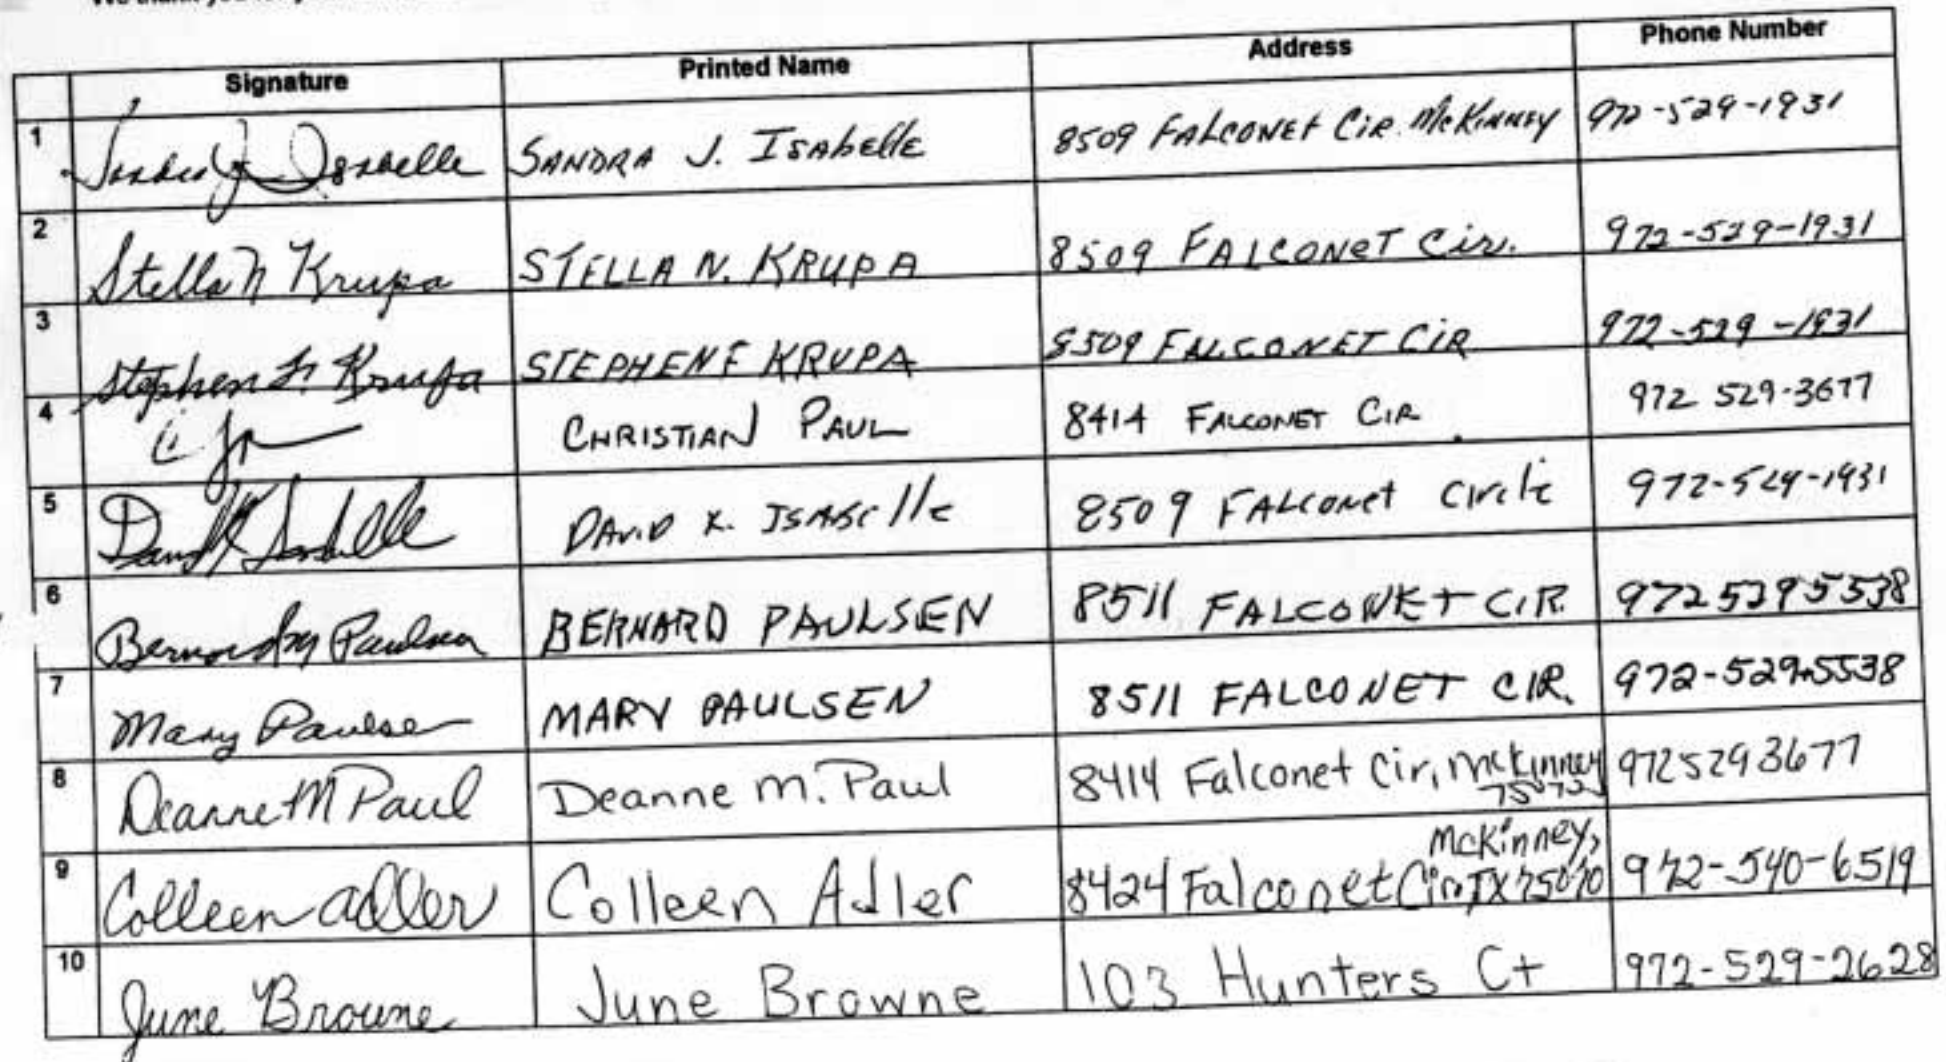 Signature Printed Name Address Phone Number
1 Sandra J. Isabelle SANDRA J. ISAbellE 8509 FALCONET CiR. McKiNNEY 972-529-1931
2 Stella N Krupa STELLA N. KRUPA 8509 FALCONET Cir. 972-529-1931
3 Stephen F. Krupa STEPHEN F KRUPA 8509 FALCONET CIR 972-529-1931
4 CHRISTIAN PAUL 8414 FALCONET CIR 972 529-3677
5 David K Isabelle DAVID K. ISABelle 8509 FALCONET Circle 972-529-1931
6 Bernard M Paulsen BERNARD PAULSEN 8511 FALCONET CIR. 972 529 5538
7 Mary Paulsen MARY PAULSEN 8511 FALCONET CIR. 972-529-5538
8 Deanne M Paul Deanne M. Paul 8414 Falconet Cir, McKinney 9725293677
75070
McKinney,
9 Colleen Adler Colleen Adler 8424 Falconet Cir. TX 75070 972-540-6519
10 June Browne June Browne 103 Hunters Ct 972-529-2628